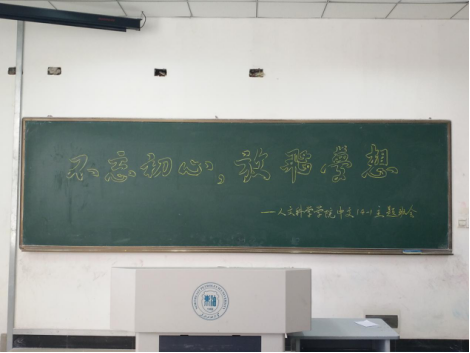 不忘初心，放飛夢想
——人文科学学院中文14-1主题班会